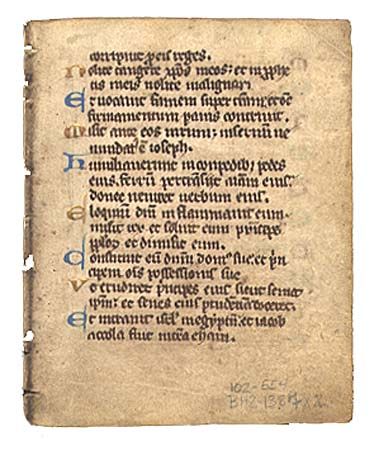 corripuit p eis reges.
Nolite tangere xpōs meos: et in pphe
tis meis nolite malignari
Et vocavit famem super terrā: et oē
firmamentum panis contrivit.
Misit ante eos virum: in servum ve
nundat' ē ioseph.
Humiliaverunt in conpedib; pedes
eius. ferrū pertransiit aīam eius.
donec veniret verbum eius.
Eloquiū dnī inflammavit eum.
misit rex et solvit eum princeps
pplor et dimisit eum.
Constituit eū dnm dom' sue: et prin
cipem oīs possessionis sue
Ut erudiret principes eius sicut semet
ipm et senes eius prudentiā doceret.
Et intravit isrl in egyptū: et iacob
accola fuit in terra cham.